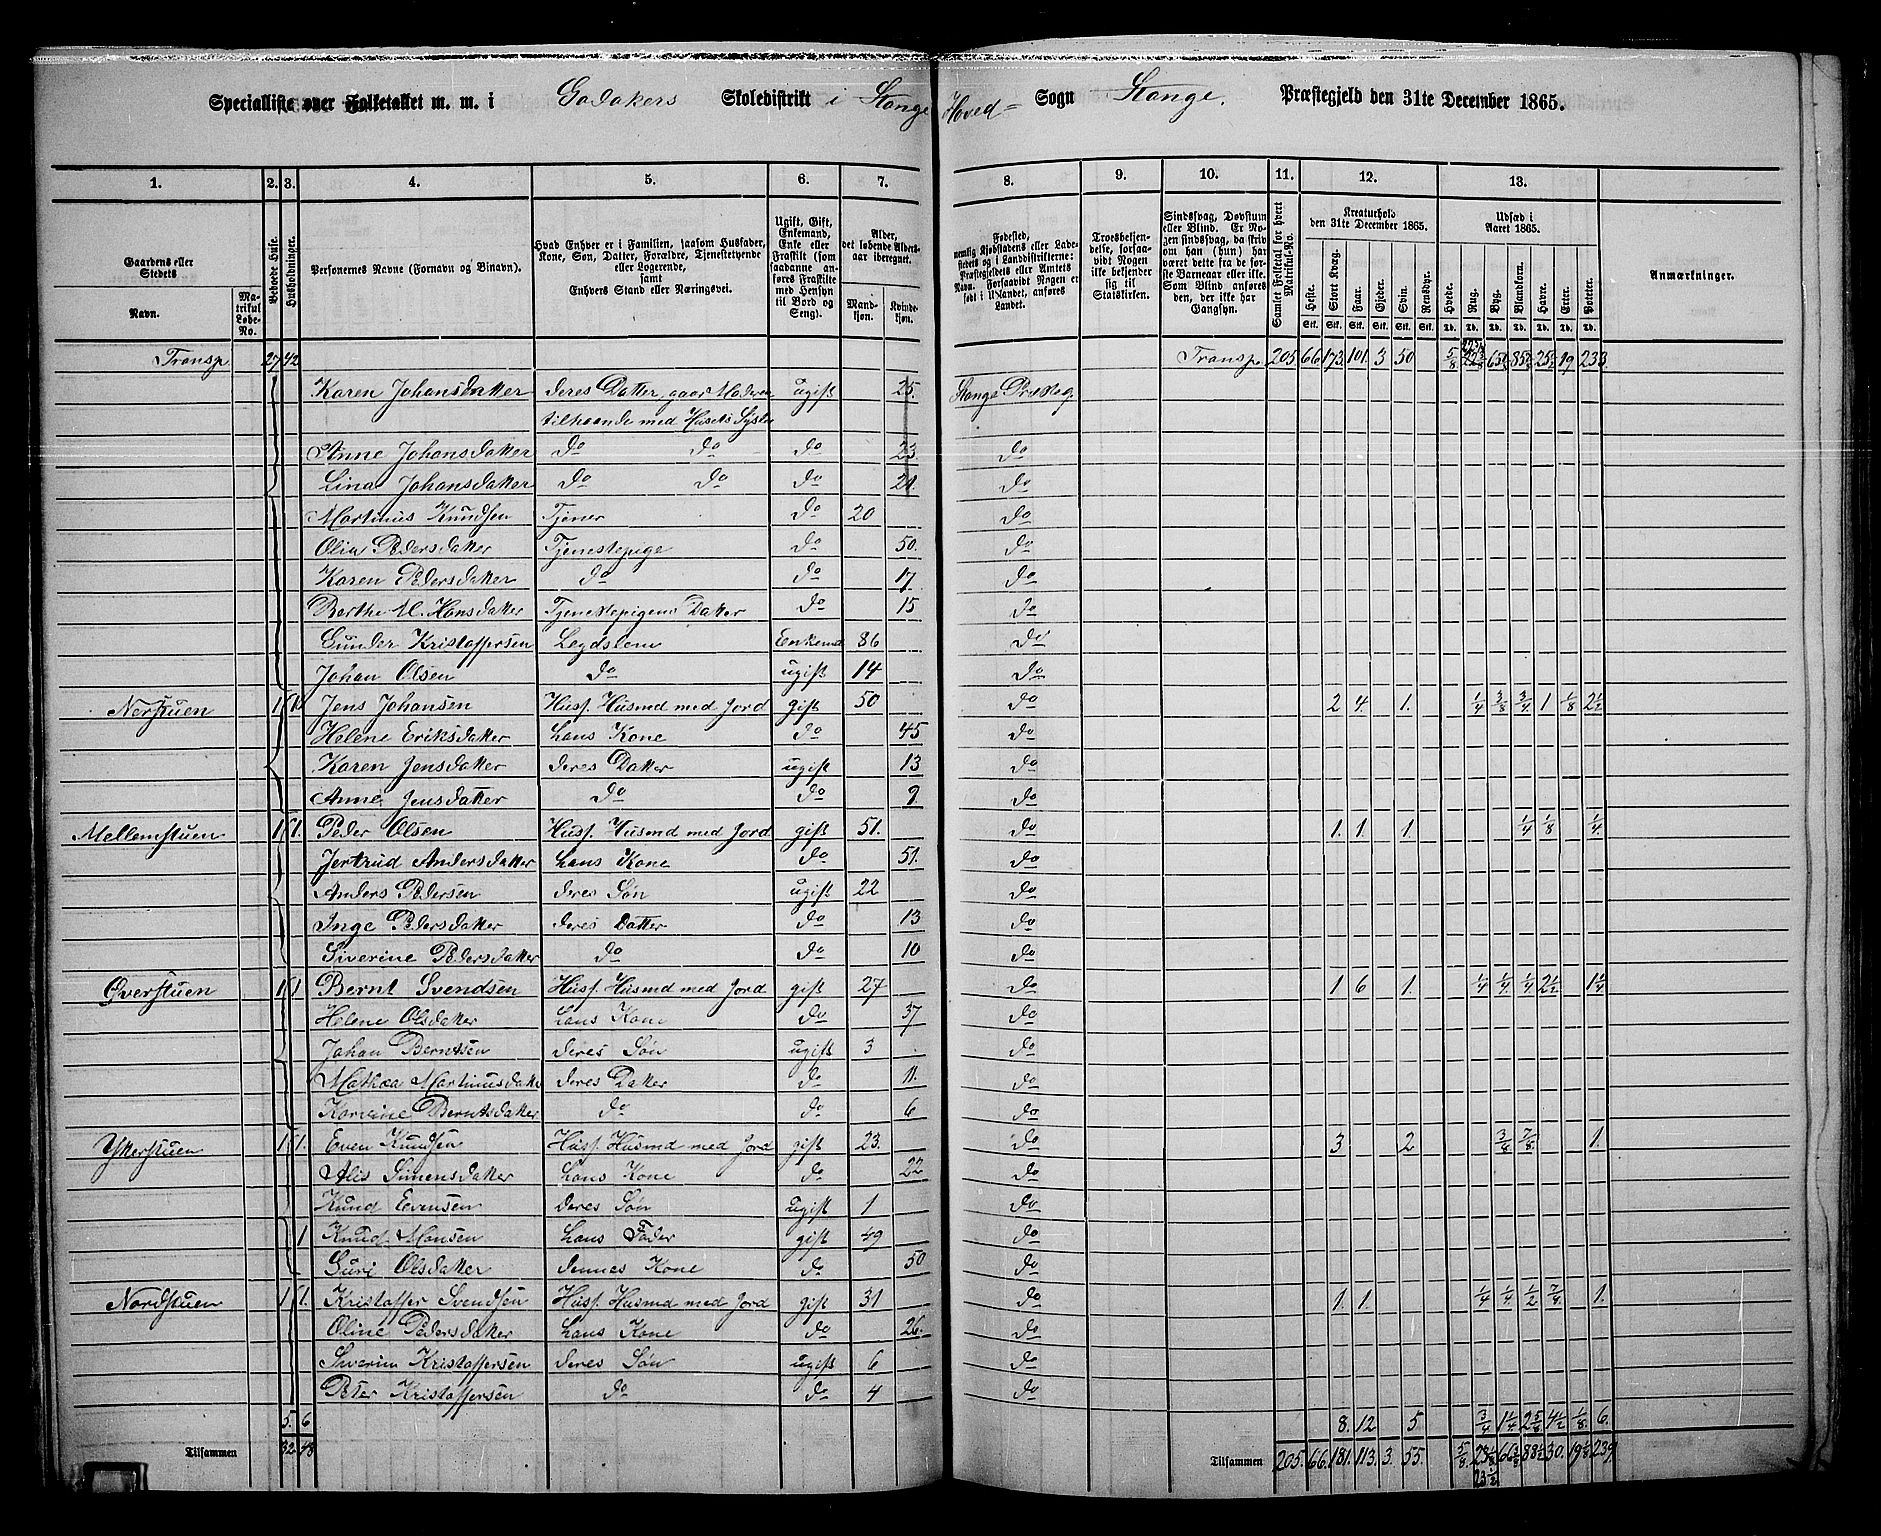 Specialliste over Folketallet m. m. i Godakers Skoledistrikt i Stange Hoved= Sogn Stange. Præstegjeld den 31te December 1865.
1. 2. 3. 4. 5. 6. 7. 8. 9. 10. 11. 12. 13.
Gaardens eller Stedets Navn. Matrikul Løbe-No. Beboede Huse. Husholdninger. Personernes Navne (Fornavn og Binavn). Hvad Enhver er i Familien, saasom Husfader, Kone, Søn, Datter, Forældre, Tjenestetyende eller Logerende, samt Enhvers Stand eller Næringsvei. Ugift, Gift, Enkemand, Enke eller Fraskilt (som saadanne anføres Fraskilte med Hensyn til Bord og Seng). Alder, det løbende Aldersaar iberegnet. Mandkjøn. Kvindekjøn. Fødested, nemlig Kjøbstadens eller Ladestedets og i Landdistrikterne: Præstegjeldets eller Amtets Navn. Forsaavidt Nogen er født i Udlandet, anføres Landet. Troesbekjendelse, forsaavidt Nogen ikke bekjender sig til Statskirken. Sindssvag, Døvstum eller Blind. Er Nogen sindssvag, da skrives om han (hun) har været dette fra de første Barneaar eller ikke. Som Blind anføres den, der ikke har Gangsyn. Samlet Folketal for hvert Matrikul-No. Kreaturhold den 31te December 1865. Heste. Stort Kvæg. Faar. Gjeder. Svin. Rensdyr. Udsæd i Aaret 1865. Hvede. Rug. Byg. Blandkorn. Havre. Erter. Poteter. Anmærkninger.
Transp 27 42 Transp 205 66 173. 101. 3 50 5/8 19 233
Karen Johansdatter deres Datter, gaar Moderen ugift 25. Stange Præsteg.
tilhaande med Husets Sysler
Anne Johansdatter do do do 23 do
Lina Johansdatter do do do 21. do
Martinus Knudsen Tjener do 20 do
Olia Pedersdatter Tjenestepige do 50. do
Karen Pedersdatter do do 17. do
Berthe M. Hansdatter Tjenestepigens Datter do 15 do
Gunder Kristoffersen Legdslem Enkemd 86 do
Johan Olsen do ugift 14 do
Nerstuen 1 1 Jens Johansen Husf. Husmd med Jord gift 50 do 2 4. 1. 1/4 3/8 3/4 1 1/8 2 1/2
Helene Eriksdatter hans Kone do 45 do
Karen Jensdatter deres Datter ugift 13 do
Anne Jensdatter do do 9. do
Mellemstuen 1 1. Peder Olsen Husf. Husmd med Jord gift 51. do 1. 1. 1. 1/4 1/8 1/4
Jertrud Andersdatter hans Kone do 51. do
Anders Pedersen deres Søn ugift 22 do
Inge Pedersdatter deres Datter do 13 do
Siverine Pedersdatter do do 10 do
Øverstuen 1 1 Bernt Svendsen Husf. Husmd med Jord gift 27 do 1 6 1. 1/4 1/4 1/4 2 1/2 1 1/4
Helene Olsdatter hans Kone do 37 do
Johan Berntsen deres Søn ugift 3 do
Mathea Martinusdatter deres Datter do 11. do
Karoline Berntsdatter do do 6 do
Ytterstuen 1 1. Even Knudsen Husf. Husmd med Jord gift 23. do 3 2 3/8 7/8 1.
Alis Simensdatter hans Kone do 22 do
Knud Evensen deres Søn ugift 1 do
1 Knud Monsen hans Fader gift 49 do
Guri Olsdatter dennes Kone do 50 do
Nordstuen 1 1. Kristoffer Svendsen Husf. Husmd med Jord gift 31 do 1. 1. 1/4 1/4 1/2 7/8 1.
Oline Pedersdatter hans Kone do 26. do
Siverin Kristoffersen deres Søn ugift 6 do
Peter Kristoffersen do do 4 do
5. 6 8. 12 5 3/4 1 1/4 2 5/8 4 1/2 1/8 6.
Tilsammen 32 48 Tilsammen 205. 66. 181. 113. 3. 55. 5/8 88 1/2 30. 239.